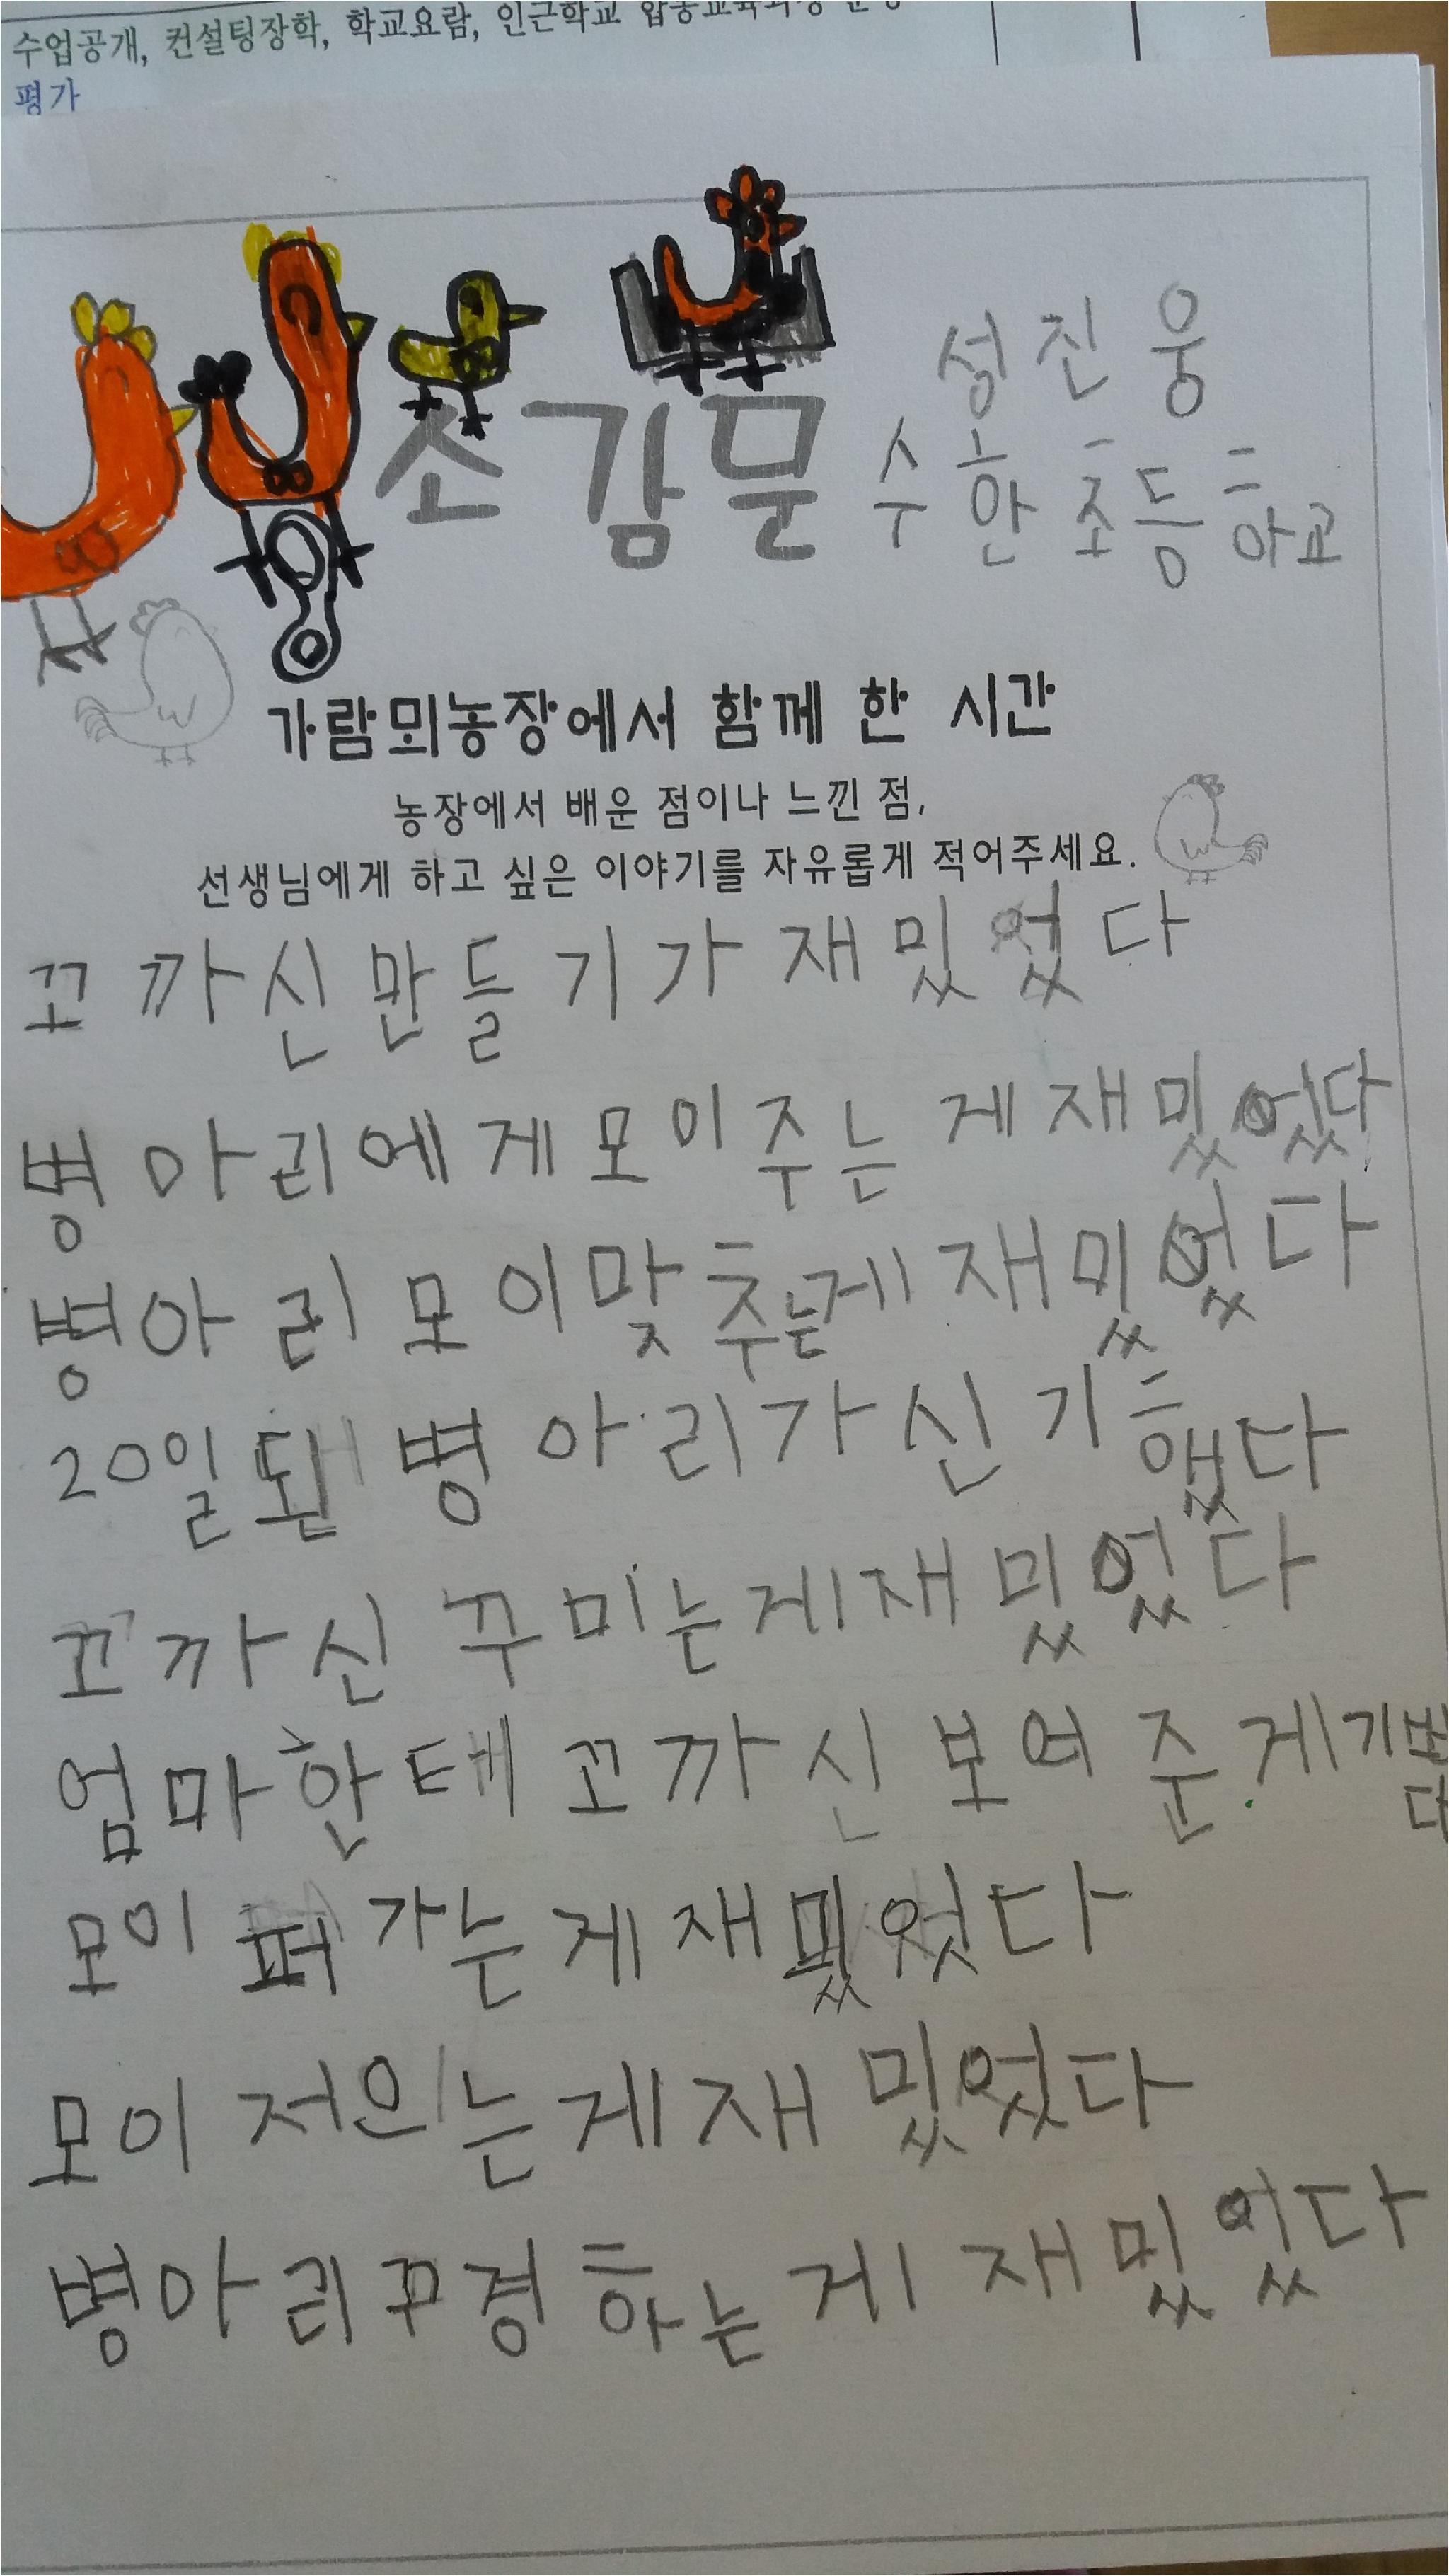 수업공개, 컨설팅장학, 학교요람, 인근학교
평가
성진웅
소감문 수한초등하교
가람뫼농장에서 함께 한 시간
농장에서 배운 점이나 느낀 점,
선생님에게 하고 싶은 이야기를 자유롭게 적어주세요.
꼬까신만들기가 재밌었다
병아리에게모이주는게재밌었다
병아리모이맞추는게재밌었다
20일 병아리가신기했다
꼬까신꾸미는게재밌었다
엄마한테꼬까신보여준게기뻤
다
모이퍼가는게재밌었다
모이저의는게재밌었다
병아리꾸경하는게재밌었다